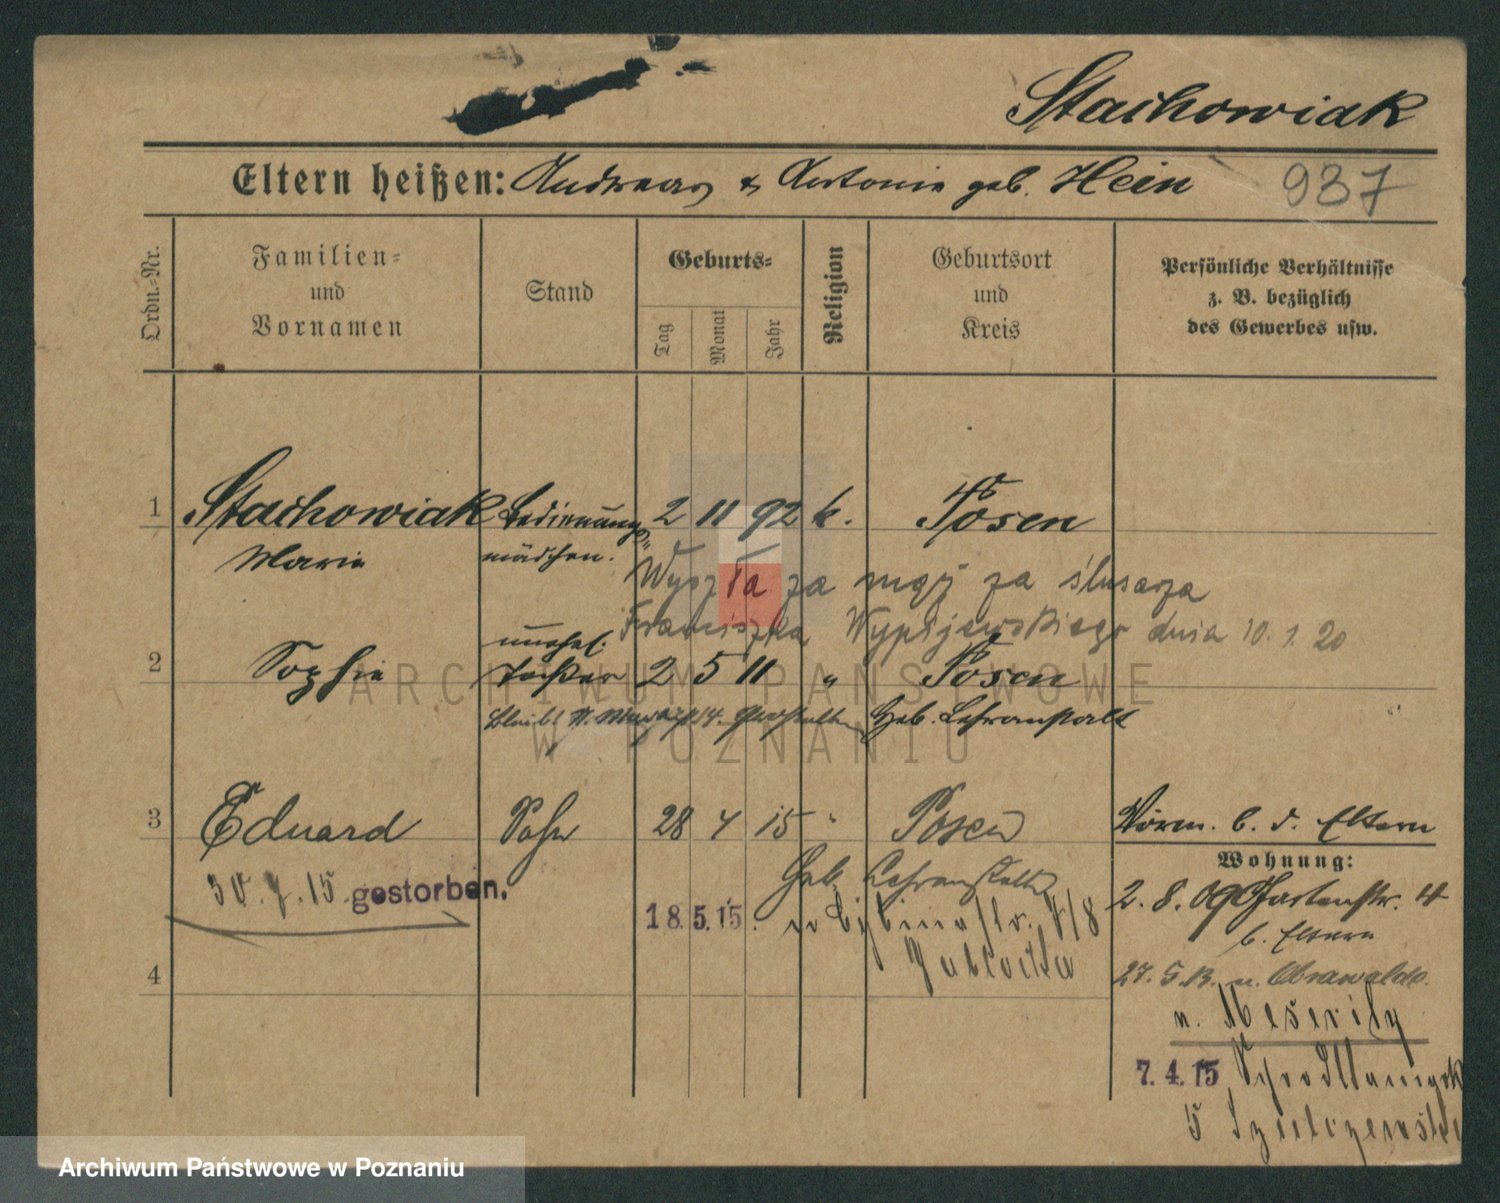 Stachowiak
Eltern heißen: Andreas & Antonie geb. Hein 937
Ordn.-Nr.
Familien- und Vornamen
Stand
Geburts-
Tag Monat Jahr
Religion
Geburtsort und Kreis
Persönliche Verhältnisse
z. B. bezüglich
des Gewerbes usw.
1 Stachowiak Bedienungs- 2 11 92 k. Posen
Maria mädchen.
Wyszła za mąż za ślusarza
Franciszka Wypijewskiego dnia 10. 1. 20
unehel.
2 Sophie Tochter 2 5 11 " Posen
bleibt Geb. Lehranstalt
3 Eduard Sohn 28 4 15 " Posen Vorm. b. d. Eltern
Wohnung:
30. 7. 15 gestorben. Geb. Lehranstalt
18. 5. 15. 2. 8. 09 Gartenstr. 4
b. Eltern
27. 5. 13. n. Obrawalde
4
n. Meseritz
7. 4. 15
5
ARCHIWUM PAŃSTWOWE
W POZNANIU
Archiwum Państwowe w Poznaniu